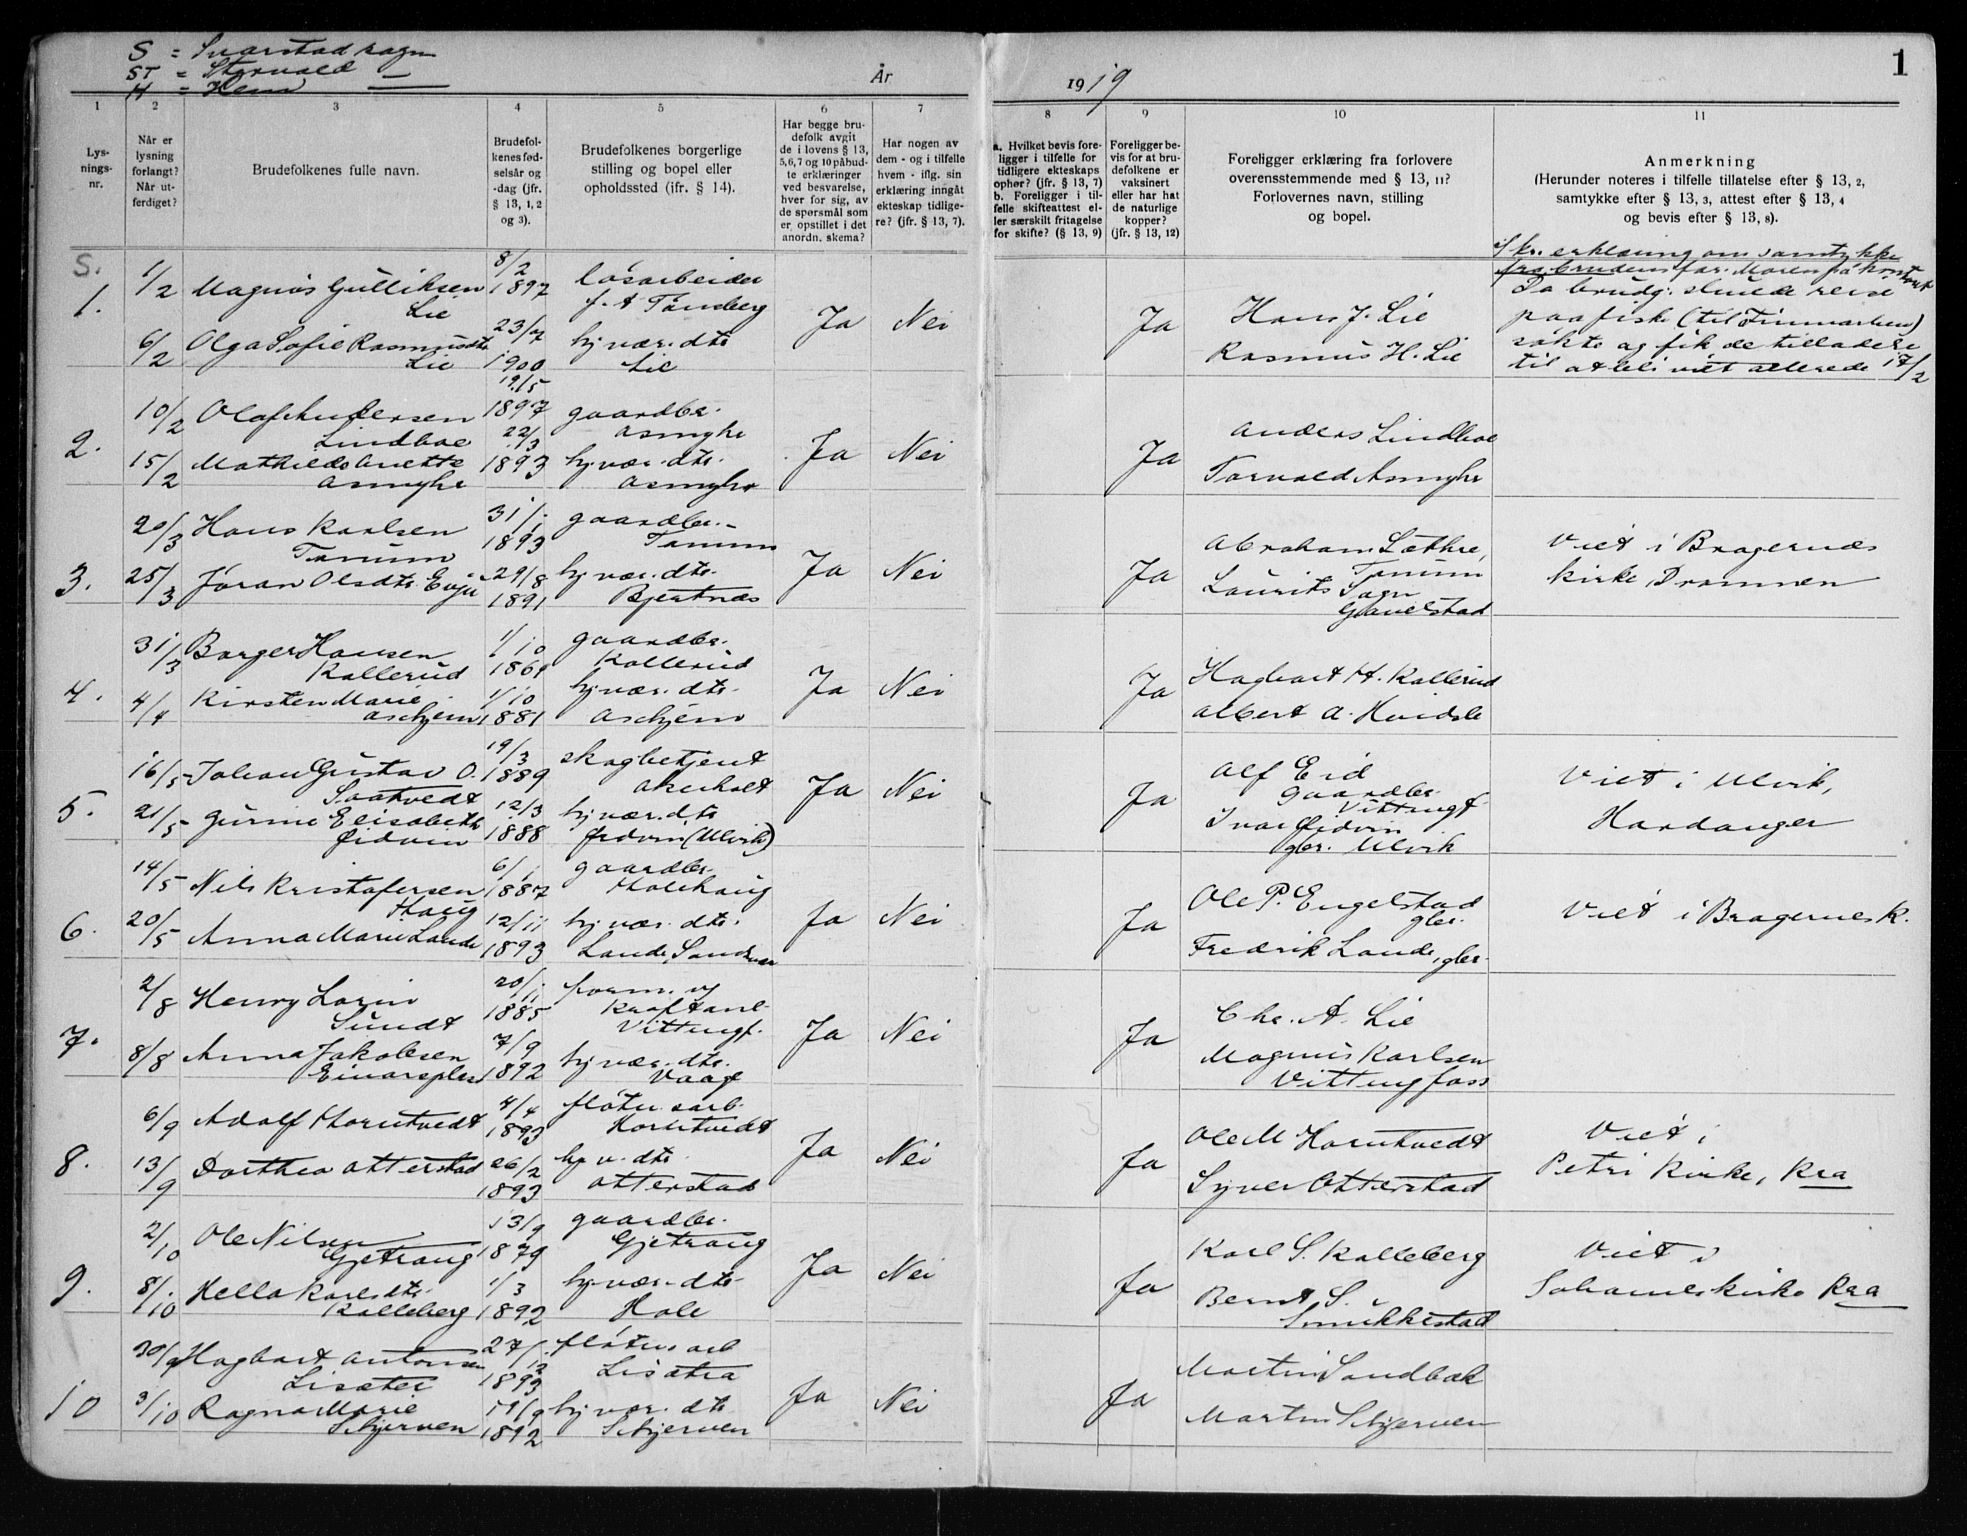 S = Svarstad sogn
ST = Størvold —
H = Hem —
År
1919
1
1
2
3
4
5
6
7
8
9
10
11
Lys-
nings-
nr.
Når er
lysning
forlangt?
Når ut-
ferdiget?
Brudefolkenes fulle navn.
Brudefol-
kenes fød-
selsår og
-dag (jfr.
§ 13, 1, 2
og 3).
Brudefolkenes borgerlige
stilling og bopel eller
opholdssted (jfr. § 14).
Har begge bru-
defolk avgit
de i lovens § 13,
5,6,7 og 10 påbud-
te erklæringer
ved besvarelse,
hver for sig, av
de spørsmål som
er opstillet i det
anordn. skema?
Har nogen av
dem - og i tilfelle
hvem - iflg. sin
erklæring inngått
ekteskap tidlige-
re? (jfr. § 13, 7).
a. Hvilket bevis fore-
ligger i tilfelle for
tidligere ekteskaps
ophør? (jfr. § 13, 7)
b. Foreligger i til-
felle skifteattest el-
ler særskilt fritagelse
for skifte? (§ 13, 9)
Foreligger be-
vis for at bru-
defolkene er
vaksinert
eller har hat
de naturlige
kopper?
(jfr. § 13, 12)
Foreligger erklæring fra forlovere
overensstemmende med § 13, 11?
Forlovernes navn, stilling
og bopel.
Anmerkning
(Herunder noteres i tilfelle tillatelse efter § 13, 2,
samtykke efter § 13, 3, attest efter § 13, 4
og bevis efter § 13, 8).
S.
1.
1/2
Magnus Gulliksen
Lie
8/2
1897
løsarbeider
f. t Tønsberg
6/2
Olga Sofie Rasmusdtr
Lie
23/7
1900
hj.vær. dtr
Lie
Ja
Nei
Ja
Hans J. Lie
Rasmus H. Lie
Skr. erklæring om samtykke
fra brudens far. Moren på kontoret
Da brudg. skulde reise
paa fiske (til Finmarken)
søkte og fik de tilladelse
til at bli viet allerede 17/2
2.
10/2
Olaf Andersen
Lindboe
19/5
1897
gaardbr.
Asmyhr
15/2
Mathilde Anette
Asmyhr
22/3
1893
hj.vær. dtr.
Asmyhr
Ja
Nei
Ja
Anders Lindboe
Torvald Asmyhr
3.
20/3
Hans Karlsen
Tanum
31/1
1893
gaardbr.
Tanum
25/3
Jøran Olsdtr. Evju
29/8
1891
hj.vær. dtr.
Bjertnæs
Ja
Nei
Ja
Abraham Løthre,
Tanum
Laurits Sogn
Gavelstad
Viet i Bragernæs
Kirke, Drammen
4.
31/3
Borger Hansen
Kallerud
1/10
1861
gaardbr.
Kallerud
4/4
Kirsten Marie
Aschjem
1/10
1881
hj.vær. dtr.
Aschjem
Ja
Nei
Ja
Hagbart H. Kallerud
Albert A. Hvidsle
5.
16/5
Johan Gustav O.
Saatvedt
19/3
1889
skogbetjent
Akerholt
21/5
Gurine Elisabeth
Øidvin
12/3
1888
hj.vær. dtr
Øidvin (Ulvik)
Ja
Nei
Ja
Alf Eid
Gaardbr.
Vittingf.
Ivar Øidvin
gbr. Ulvik
Viet i Ulvik,
Hardanger
6.
14/5
Nils Kristofersen
Haug
6/1
1887
gaardbr.
Holehaug
20/5
Anna Marie Lande
12/11
1893
hj.vær. dtr.
Lande, Sandsvær
Ja
Nei
Ja
Ole P. Engelstad
gbr.
Fredrik Lande, gbr.
Viet i Bragernes k.
7.
2/8
Henry Lorin
Sundt
20/11
1885
form. v/
Kraftanl.
Vittingf.
8/8
Anna Jakobsen
Einarsplas
7/9
1892
hj.vær. dtr.
Vaaf
Ja
Nei
Ja
Chr. A. Lie
Magnus Karlsen
Vittingfoss
8.
6/9
Adolf Horntvedt
4/4
1893
fløtn.sarb.
Horntvedt
13/9
Dorthea Otterstad
26/2
1893
hj. v. dtr.
Otterstad
Ja
Nei
Ja
Ole M. Horntvedt
Syver Otterstad
Viet i
Petri Kirke, Kra
9.
2/10
Ole Nilsen
Gjetrang
13/9
1879
gaardbr.
Gjetrang
8/10
Hella Karlsdtr.
Kolleberg
1/3
1892
hj.vær. dtr.
Hole
Ja
Nei
Ja
Karl S. Kolleberg
Bernt S.
Smukkestad
Viet i
Johanneskirke Kra
10
30/9
Hagbart Antonsen
Lisæter
27/12
1893
fløtnsarb
Lisætra
3/10
Ragna Marie
Skjerven
19/9
1892
hj.vær. dtr
Skjerven
Ja
Nei
Ja
Martin Sandbæk
Martin Skjerven